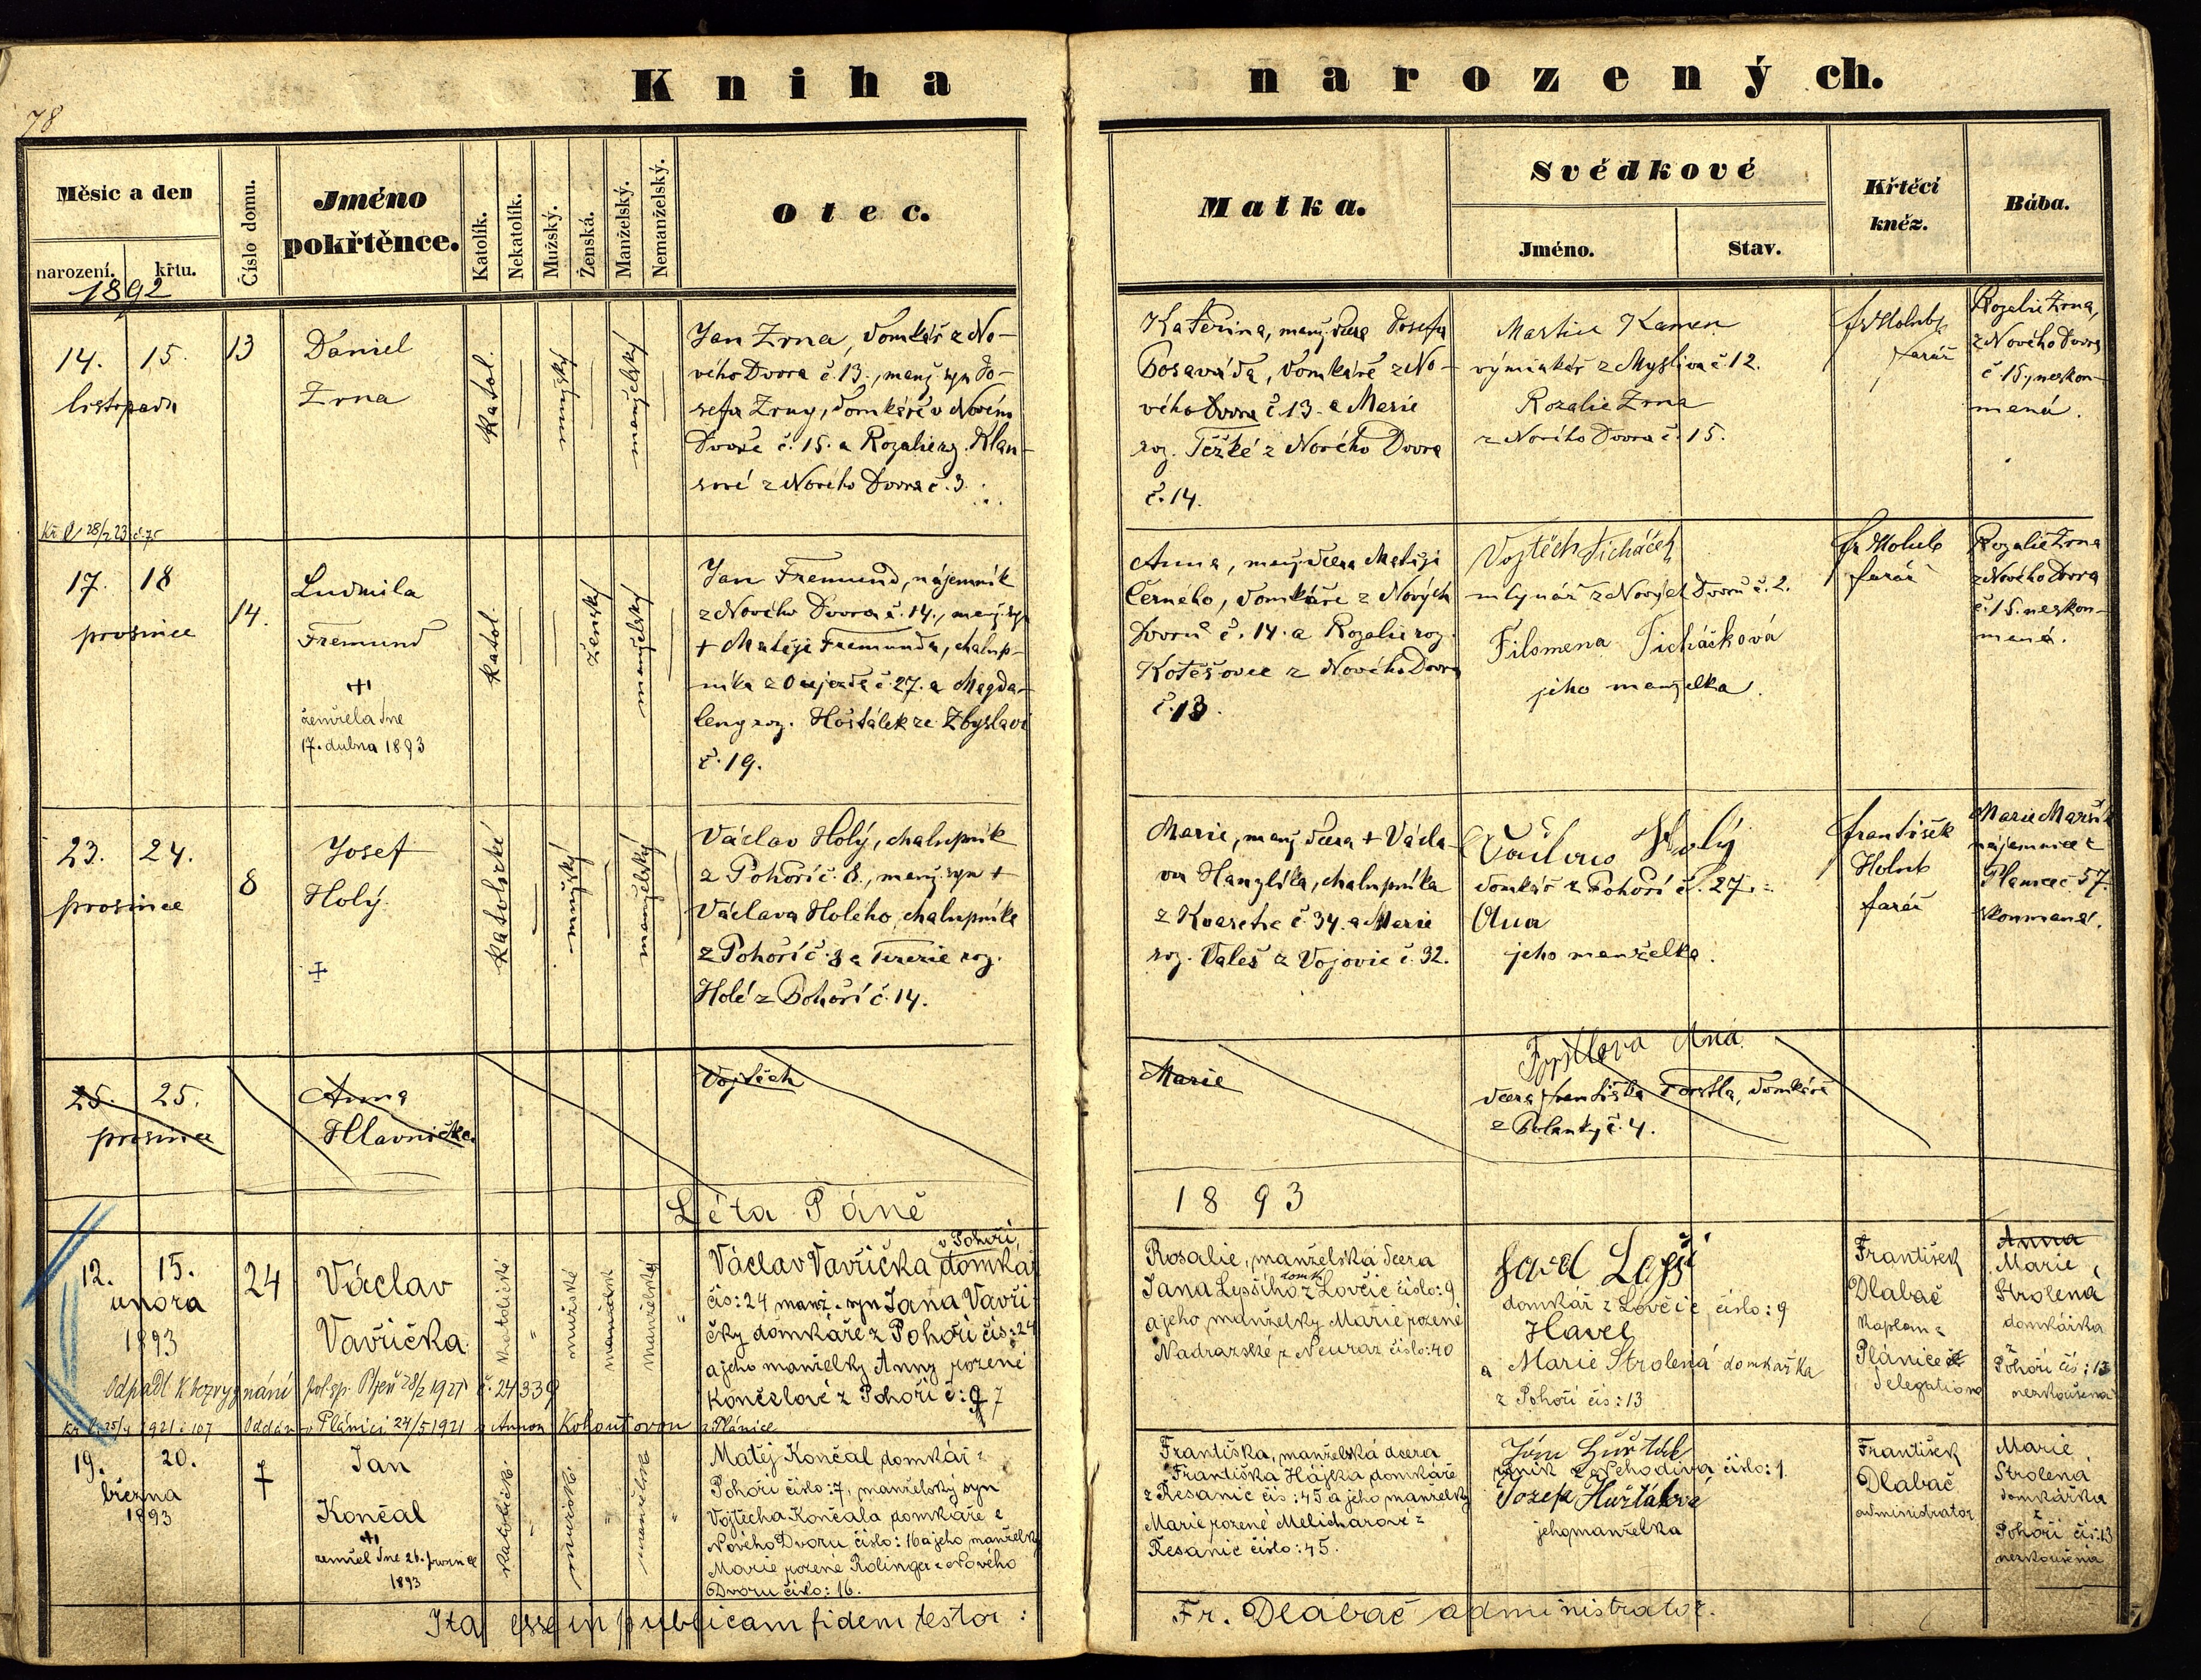 Kniha narozených.
78
Měsíc a den
narození.
křtu.
1892
Číslo domu.
Jméno
pokřtěnce.
Katolík.
Nekatolík.
Mužský.
Ženská.
Manželský.
Nemanželský.
Otec.
Matka.
Svědkové
Jméno.
Stav.
Křtěcí
kněz.
Bába.
14. 15.
listopadu
13
Daniel
Zrna
katol.
mužský
manželský
Jan Zrna, domkář z No-
vého Dvora č. 13., manž. syn Jo-
sefa Zrny, domkáře v Novém
Dvoře č. 15. a Rozalie roz. Klan-
z Nového Dvora č. 3.
Kateřina, manž. dcera Josefa
domkáře z No-
vého Dvora č. 13. a Marie
roz. Těžké z Nového Dvora
č. 14.
Martin Kamen
výminkář z Myslíva č. 12.
Rozalie Zrna
z Nového Dvora č. 15.
fr Holub
farář
Rozalie Zrna,
z Nového Dvora
č. 15, neskou-
mená.
17. 18
prosince
14.
Ludmila
Fremund
zemřela dne
17. dubna 1893
katol.
ženský
manželský
Jan Fremund, nájemník
z Nového Dvora č. 14., manž. syn
+ Matěje Fremunda, chalup-
níka z Oujezda č. 27. a Magda-
leny roz. Hošťálek ze Zbyslavi
č. 19.
Anna, manž. dcera Matěje
Černého, domkáře z Nových
Dvorů č. 14. a Rozalie roz.
Kotěšovec z Nového Dvora
č. 13.
Vojtěch Ticháček
mlynář z Nových Dvorů č. 2.
Filomena Ticháčková
jeho manželka.
fr Holub
farář
Rozalie Zrna
z Nového Dvora
č. 15. neskou-
mená.
23. 24.
prosince
8
Josef
Holý
katolické
mužský
manželský
Václav Holý, chalupník
z Pohoří č. 8., manž. syn +
Václava Holého, chalupníka
z Pohoří č. 8 a Terezie roz.
Holé z Pohoří č. 14.
Marie, manž. dcera + Václa-
va Hanzlíka, chalupníka
z Kvasetic č. 34. a Marie
roz. Valeš z Vojovic č. 32.
Václav Holý
domkář z Pohoří č. 27.
Ana
jeho manželka.
František
Holub
farář
Marie Maršík
nájemnice z
Plánice č 57.
skoumaná.
25. 25.
prosince
Anna
Hlavnička
Vojtěch
Marie
Ana
dcera Františka Forstla, domkáře
z Polánky č. 4.
Léta Páně 1893
12. 15.
února
1893
24
Václav
Vavřička
katolické
mužské
manželský
v Pohoří,
Václav Vavřička domkář
čís: 24 manž. syn Jana Vavři-
čky domkáře z Pohoří čís: 24
a jeho manželky Anny rozené
Končelové z Pohoří č: 7
Rosalie, manželská dcera
Jana Lepšího domk. z Lovčic číslo: 9
a jeho manželky Marie rozené
Nadrazské z Neuraz číslo: 40
domkář z Lovčic, číslo: 9
Havel
a Marie Strolená domkářka
z Pohoří čís: 13
František
Dlabač
kaplan z
Plánice
delegatione
Anna
Marie
Strolená
domkářka
z
Pohoří čís: 13
nezkoušená
Odpadl k bezvyznání pol. sp. Plzeň 28/2 1921 č. 24339
1921 č 107 Oddán v Plánici 24/5 1921 s Annou Kohoutovou z Plánice
19. 20.
března
1893
7
Jan
Končal
zemřel dne 26. prosince
1893
katolické.
mužské.
manželské
Matěj Končal domkář z
Pohoří číslo: 7, manželský syn
Vojtěcha Končala domkáře z
Nového Dvoru číslo: 16 a jeho manželky
Marie rozené Rolinger z Nového
Dvoru číslo: 16.
Františka, manželská dcera
Františka Hájka domkáře
z Řesanic čís: 45 a jeho manželky
Marie rozené Melicharové z
Řesanic číslo: 45.
Jan Huřták
rolník z Nehodiva číslo: 1.
Jozefa Huřtáková
jeho manželka
František
Dlabač
administrator
Marie
Strolená
domkářka
z
Pohoří čís: 13
nezkoušená
Ita esse in publicam fidem testor: Fr. Dlabač administrator.